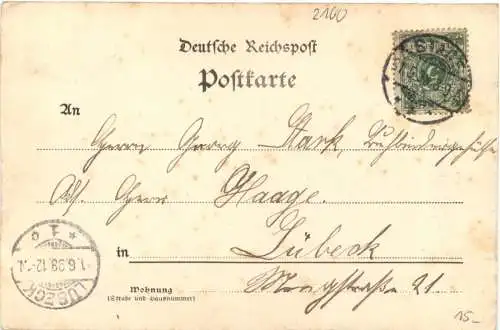 2100
Deutsche Reichspost
Postkarte
An
Herrn Georg Stark, Buchbindergehülfe
Adr. Herrn Haage.
in Lübeck
Wohnung Mengstraße 21.
(Straße und Hausnummer)
LÜBECK
1.6.98.12-1
* 1 c
15-